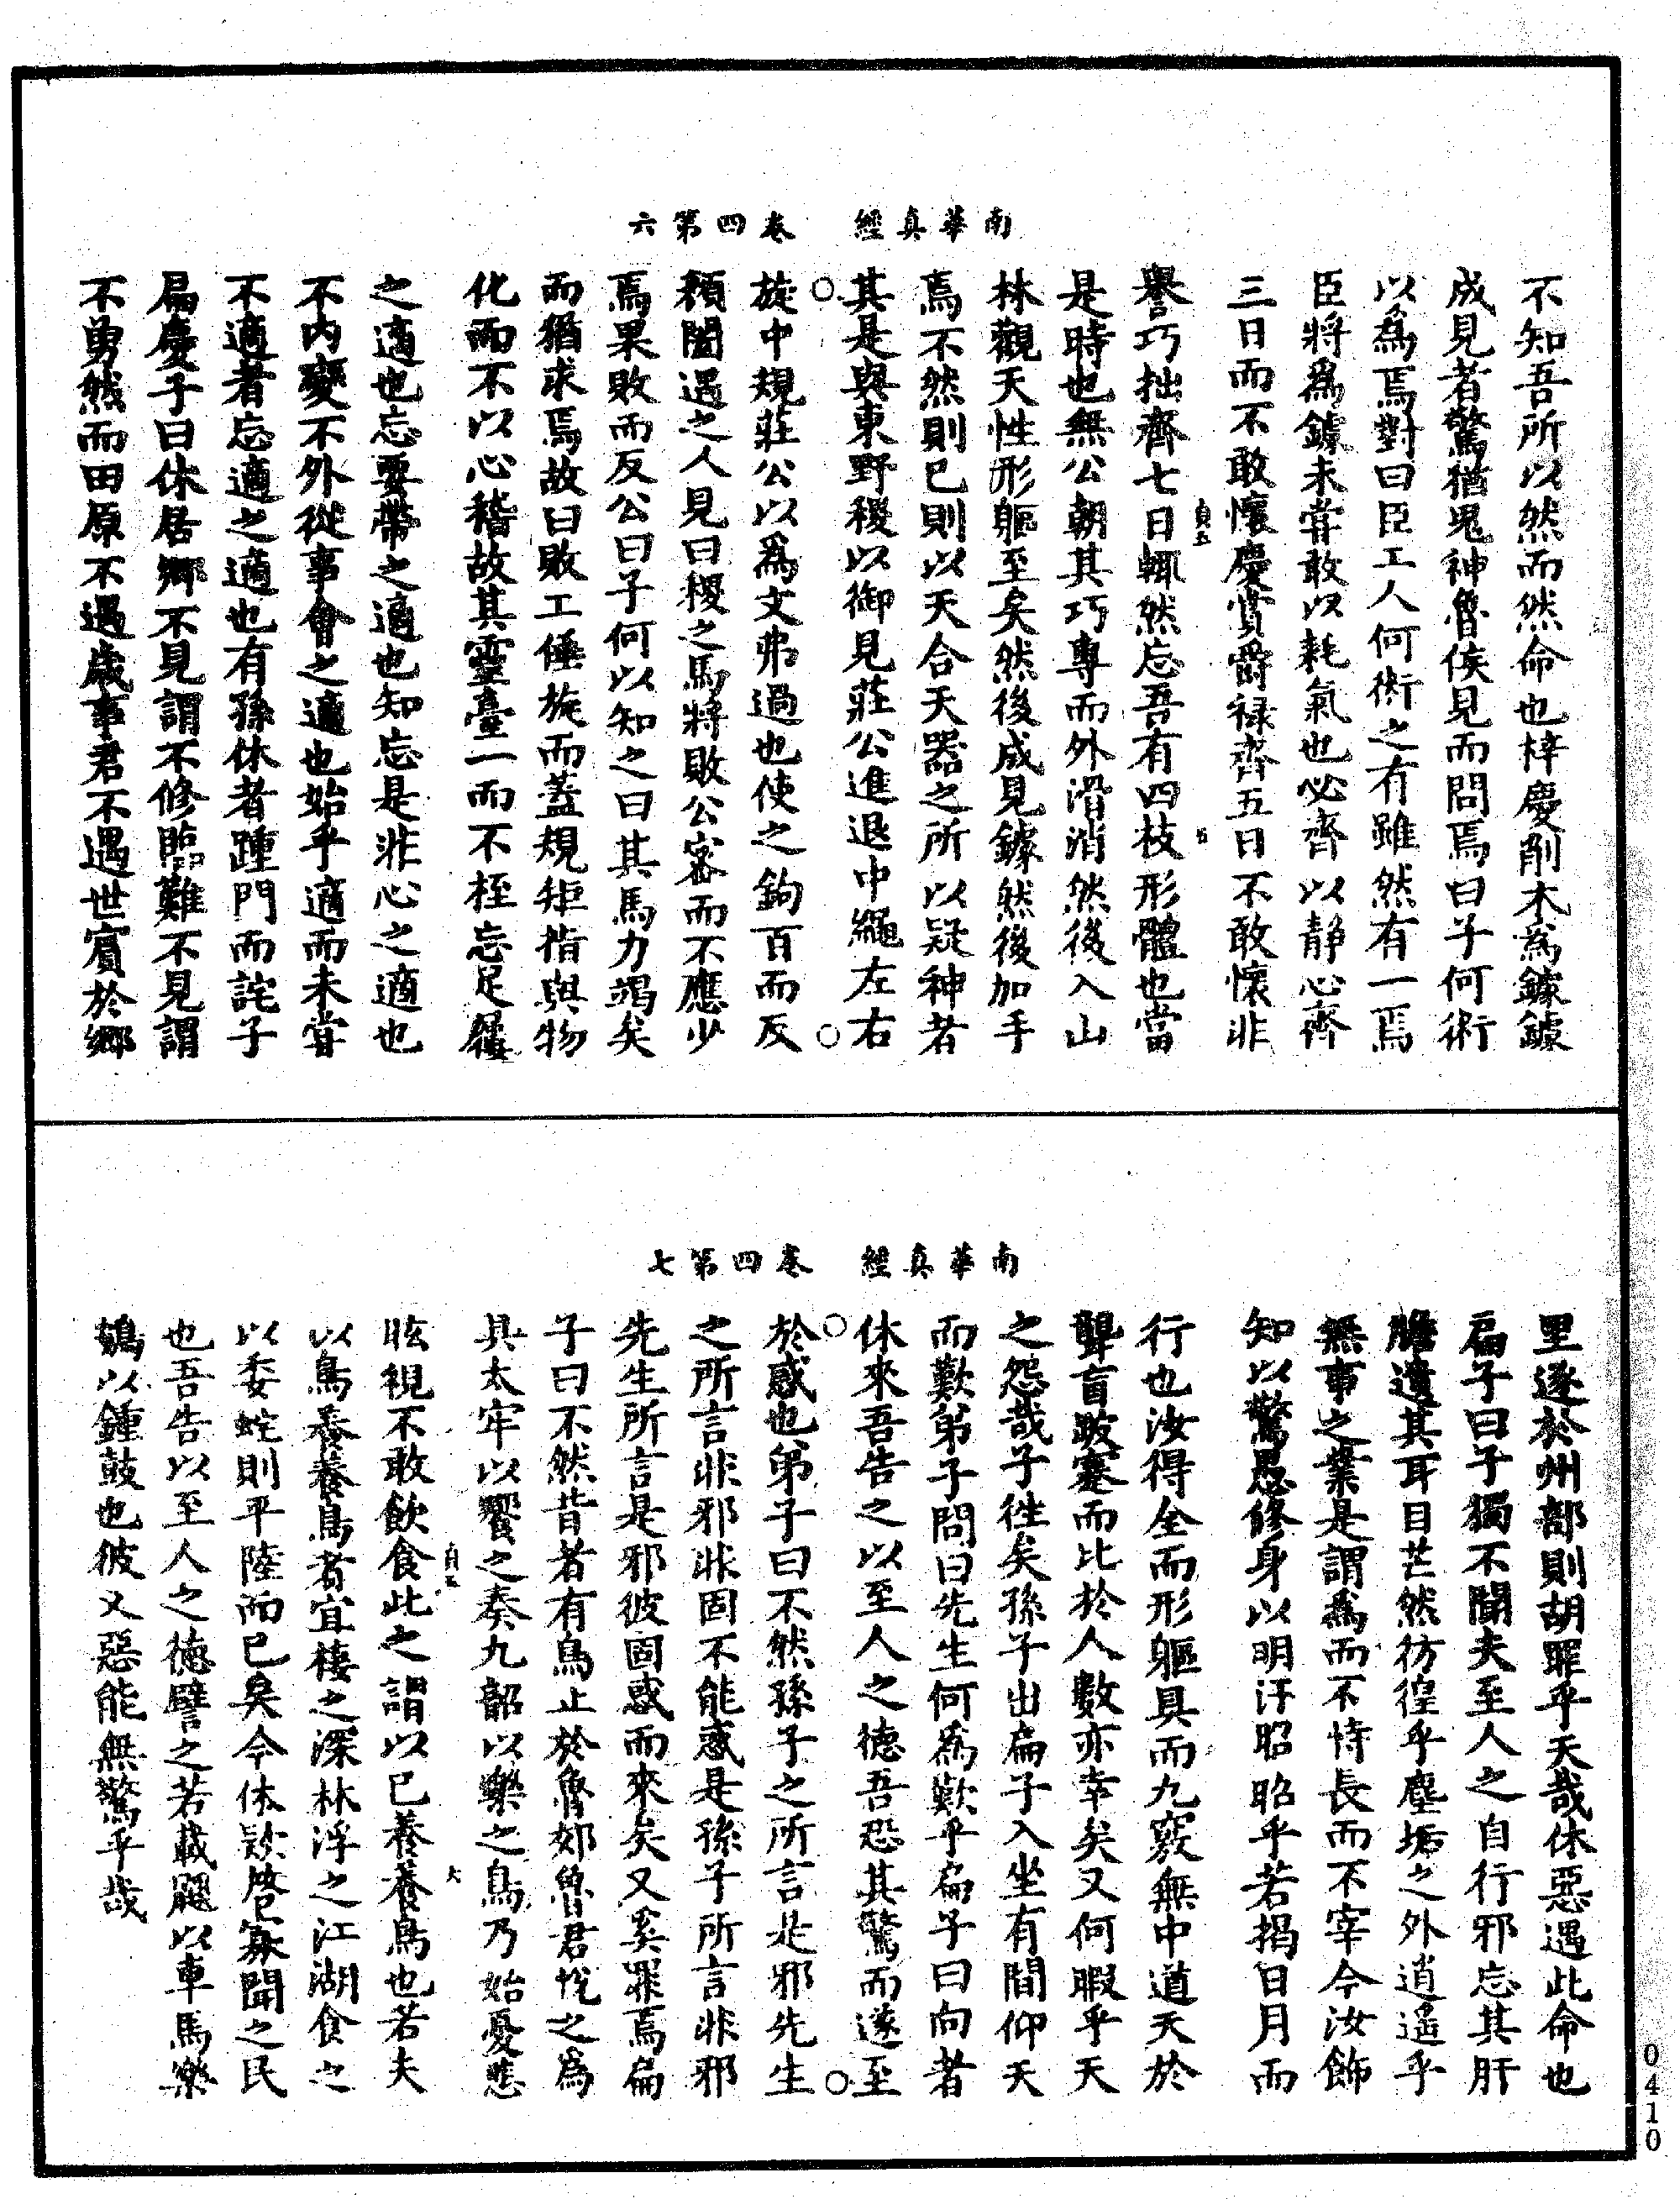 南華真經　卷四第六
不知吾所以然而然命也梓慶削木為鐻鐻
成見者驚猶鬼神魯侯見而問焉曰子何術
以為焉對曰臣工人何術之有雖然有一焉
臣將為鐻未嘗敢以耗氣也必齊以静心齊
三日而不敢懷慶賞爵禄齊五日不敢懷非
譽巧拙齊七日輒然忘吾有四枝形體也當
是時也無公朝其巧專而外滑消然後入山
林觀天性形軀至矣然後成見鐻然後加手
焉不然則已則以天合天器之所以疑神者
其是與東野稷以御見莊公進退中繩左右
旋中規莊公以為文弗過也使之鉤百而反
顏闔遇之人見曰稷之馬將敗公密而不應少
焉果敗而反公曰子何以知之曰其馬力竭矣
而猶求焉故曰敗工倕旋而蓋規矩指與物
化而不以心稽故其靈臺一而不桎忘足履
之適也忘要帶之適也知忘是非心之適也
不內變不外從事會之適也始乎適而未嘗
不適者忘適之適也有孫休者踵門而詫子
扁慶子曰休居鄉不見謂不修臨難不見謂
不勇然而田原不遇歲事君不遇世賓於鄉
南華真經　卷四第七
里逐於州部則胡罪乎天哉休惡遇此命也
扁子曰子獨不聞夫至人之自行邪忘其肝
膽遺其耳目芒然彷徨乎塵垢之外逍遥乎
無事之業是謂為而不恃長而不宰今汝飾
知以驚愚修身以明汙昭昭乎若揭日月而
行也汝得全而形軀具而九竅無中道夭於
聾盲跛蹇而比於人數亦幸矣又何暇乎天
之怨哉子往矣孫子出扁子入坐有間仰天
而歎弟子問曰先生何為歎乎扁子曰向者
休來吾告之以至人之德吾恐其驚而遂至
於惑也弟子曰不然孫子之所言是邪先生
之所言非邪非固不能惑是孫子所言非邪
先生所言是邪彼固惑而來矣又奚罪焉扁
子曰不然昔者有鳥止於魯郊魯君悅之為
具太牢以饗之奏九韶以樂之鳥乃始憂悲
眩視不敢飲食此之謂以已養養鳥也若夫
以鳥養養鳥者宜棲之深林浮之江湖食之
以委蛇則平陸而已矣今休款啓寡聞之民
也吾告以至人之德譬之若載鼷以車馬樂
鴳以鍾鼓也彼又惡能無驚乎哉
0410